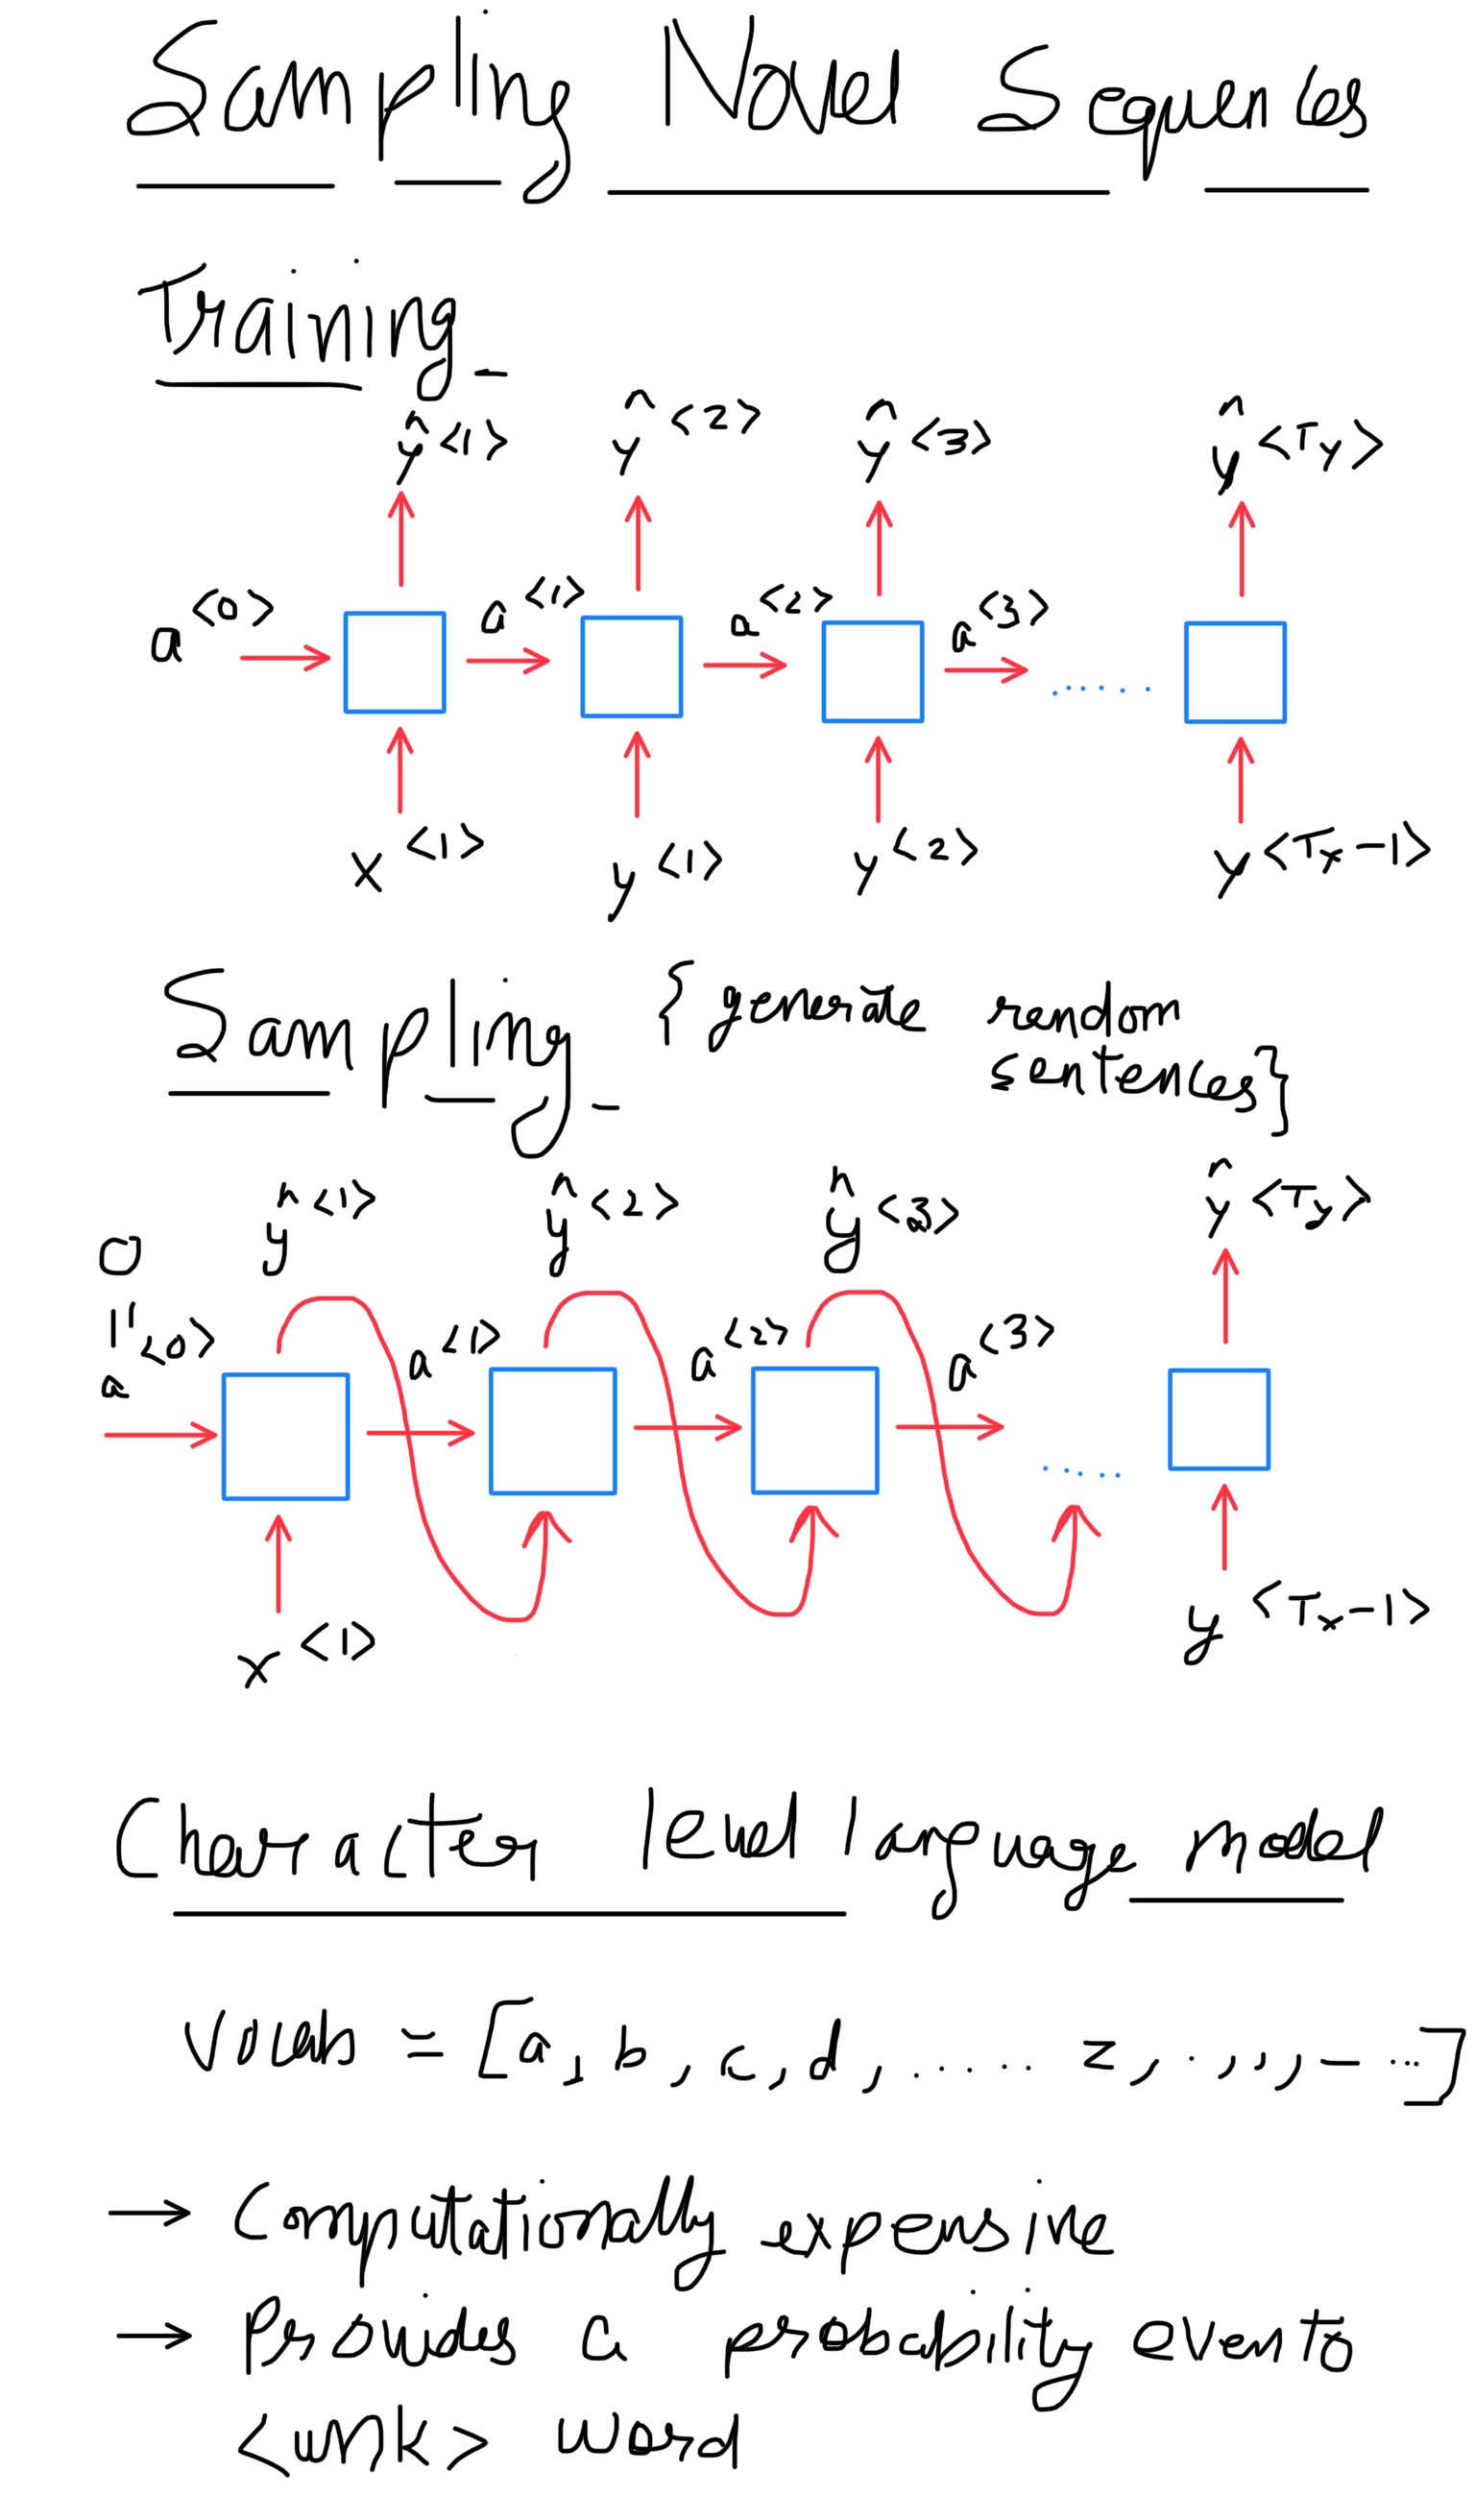 Sampling Novel Sequences
Training -
ŷ<1> ŷ<2> ŷ<3> ŷ<Ty>
a<0> a<1> a<2> a<3> ......
x<1> y<1> y<2> y<Tx-1>
Sampling - { generate random
sentences}
ŷ<1> ŷ<2> ŷ<3> ŷ<Ty>
0
||
a<0> a<1> a<2> a<3> .....
x<1> y<Tx-1>
Character level language model
Vocab = [a, b, c, d, .... z, ., ,, - ...]
→ Computationally expensive
→ Produces a probability
<unk> word